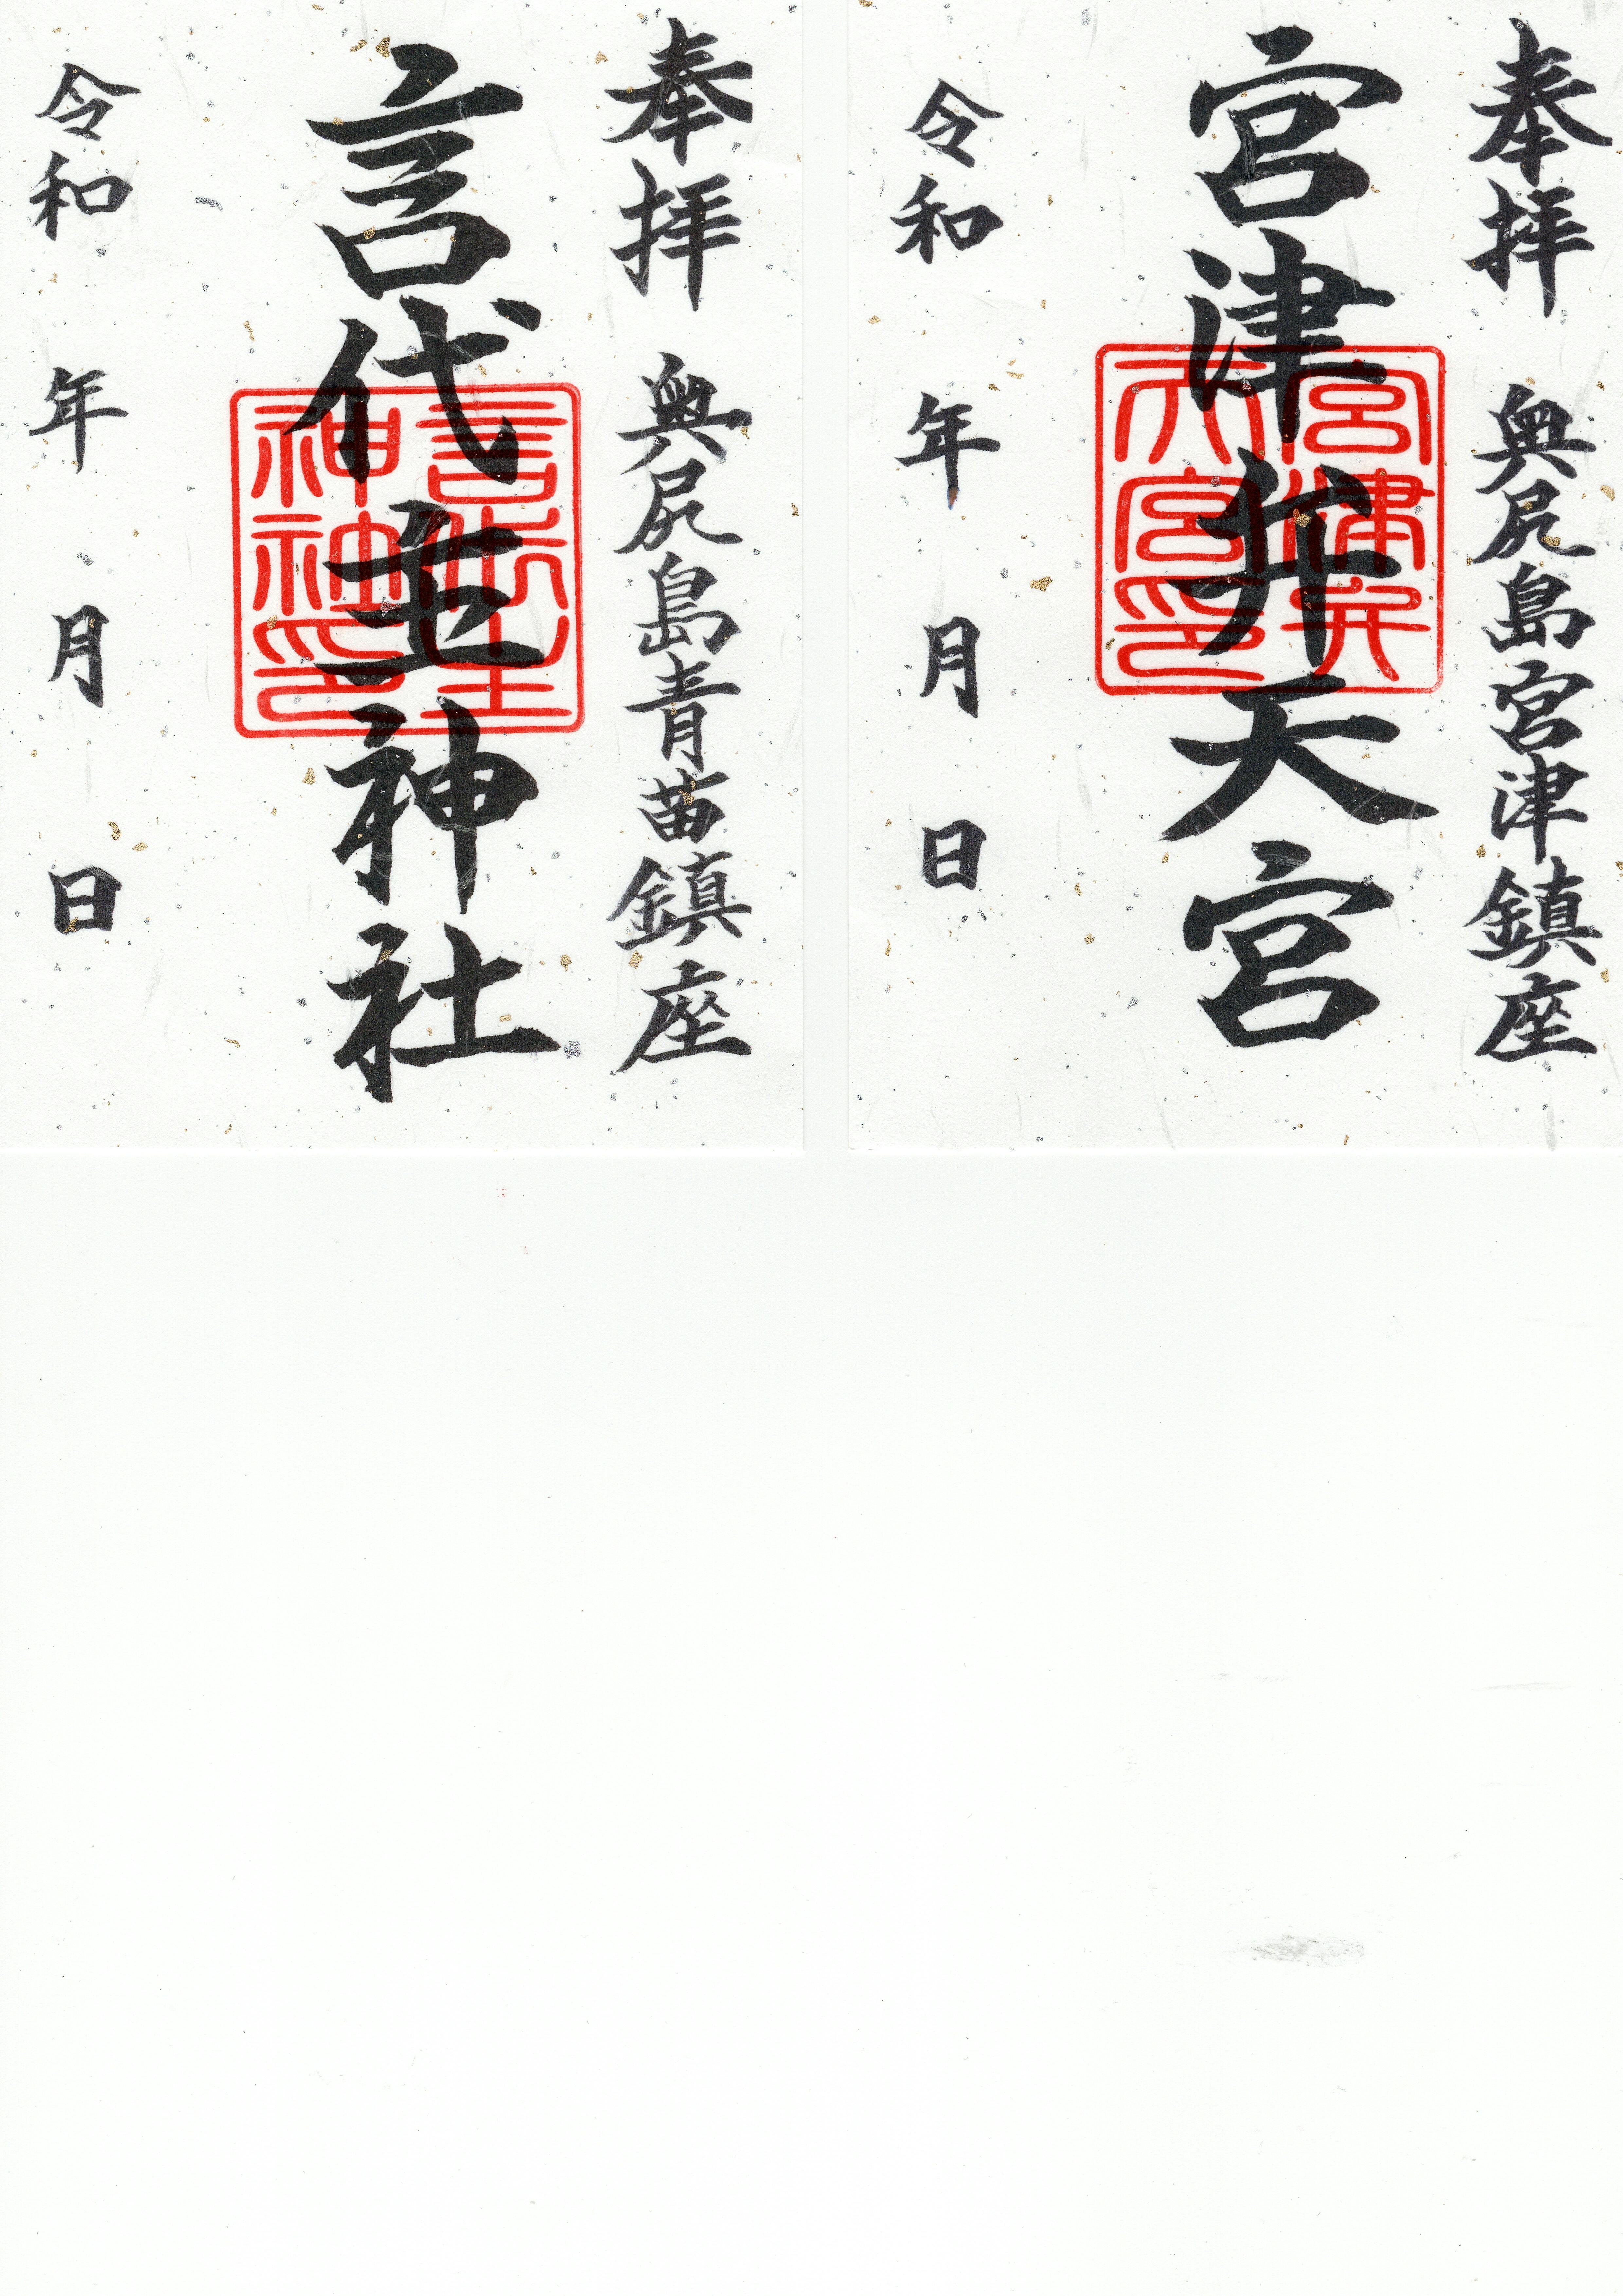 奉拝　奥尻島宮津鎮座
宮津弁天宮
宮津弁
天宮印
令和　年　月　日
奉拝　奥尻島青苗鎮座
言代主神社
言代主
神社印
令和　年　月　日